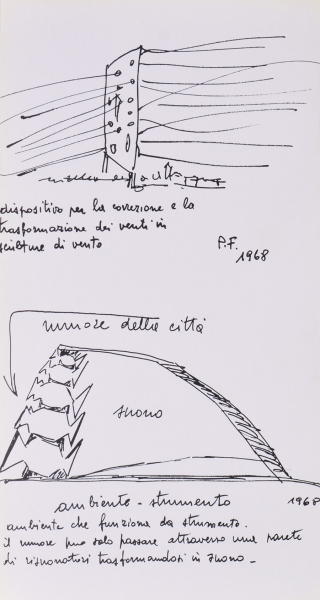 dispositivo per la correzione e la
trasformazione dei venti in
sculture di vento
P.F.
1968
rumore della città
suono
ambiente - strumento
1968
ambiente che funziona da strumento.
il rumore può solo passare attraverso una parete
di risuonatori trasformandosi in suono -